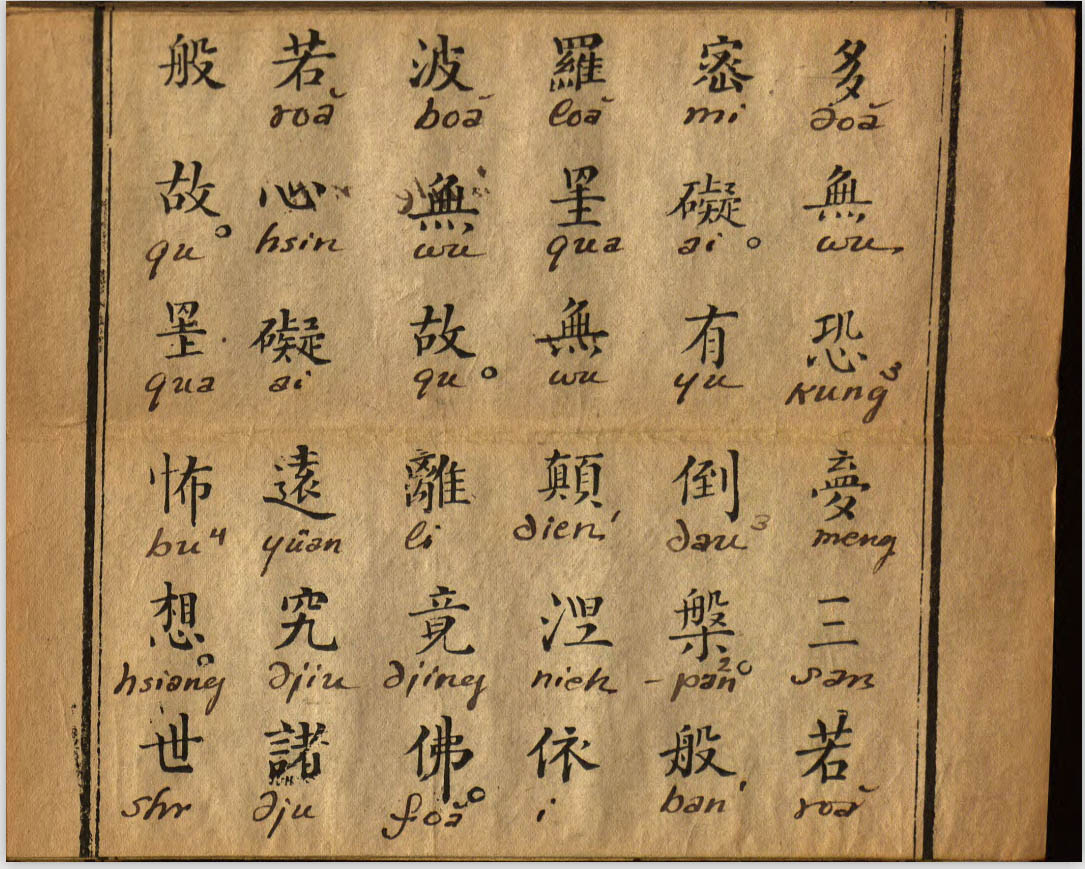 般 若 波 羅 宻 多
roă boă loă mi doă
故。 心 無 罣 礙。 無
qu hsin wu qua ai wu,
罣 礙 故。 無 有 恐
qua ai qu wu yu kung³
怖 遠 離 顛 倒 夢
bu⁴ yüan li dien¹ dau³ meng
想。 究 竟 涅 槃。 三
hsiang djiu djing nieh - pan² san
世 諸 佛。 依 般 若
shr dju foă i ban¹ roă